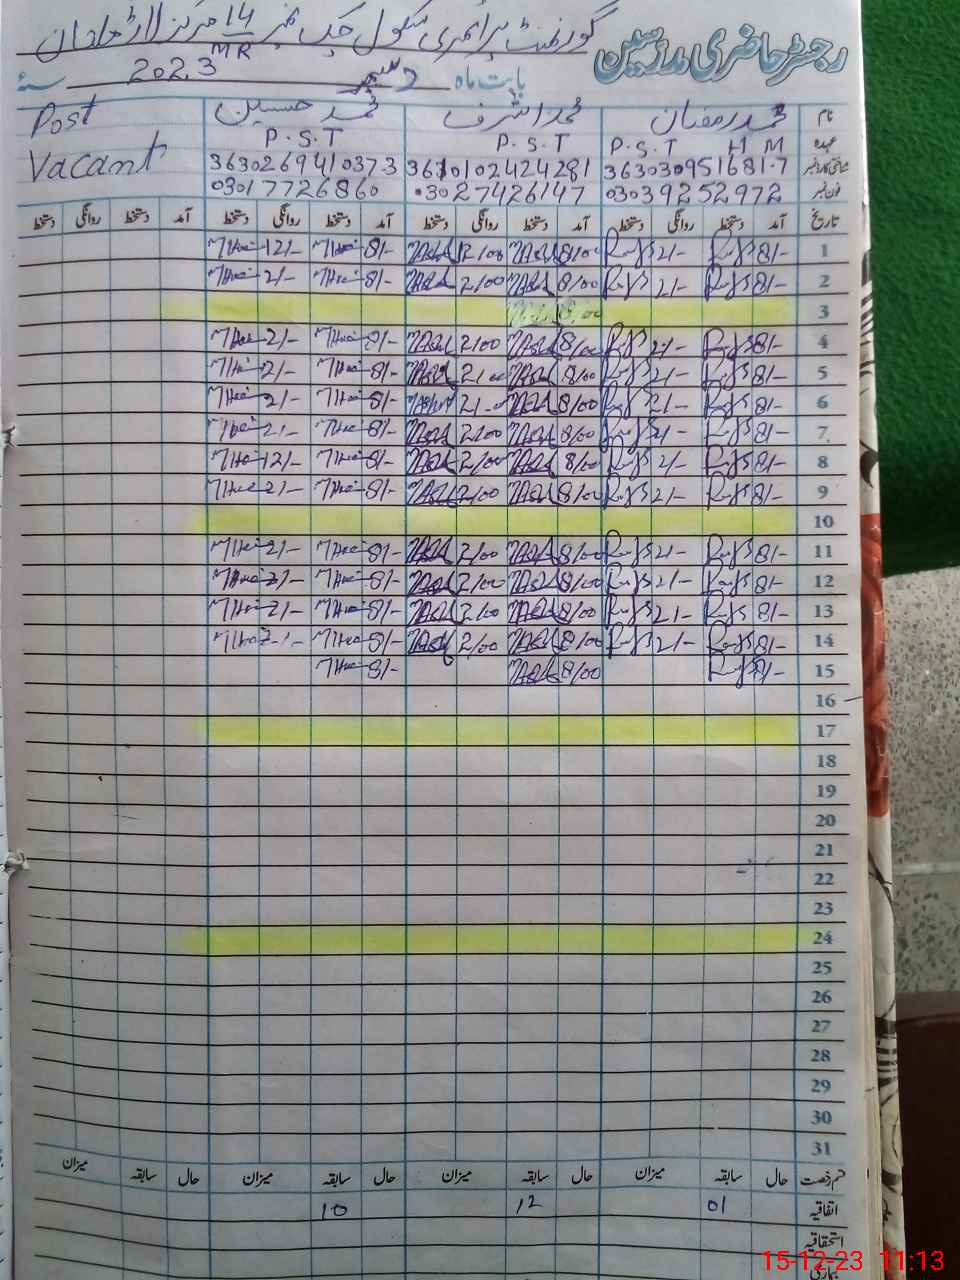 رجسٹر حاضری مدرسین
گورنمنٹ پرائمری سکول چک نمبر 14 مرکز لاڑ
MR
بابت ماہ دسمبر 2023 سنۂ
نام محمد رمضان محمد اشرف محمد حسین Post
عہدہ P.S.T H M P.S.T P.S.T
شناختی کارڈ نمبر 3630309516817 3610102424281 3630269410373 Vacant
فون نمبر 03039252972 03027426147 03017726860
تاریخ آمد دستخط روانگی دستخط آمد دستخط روانگی دستخط آمد دستخط روانگی دستخط آمد دستخط روانگی دستخط
1 8/- 2/- 8/00 12/00 8/- 12/-
2 8/- 2/- 8/00 2/00 8/- 2/-
3 8/00
4 8/- 2/- 8/00 2/00 8/- 2/-
5 8/- 2/- 8/00 2/00 8/- 2/-
6 8/- 2/- 8/00 2/-00 8/- 2/-
7 8/- 2/- 8/00 2/00 8/- 2/-
8 8/- 2/- 8/00 2/00 8/- 12/-
9 8/- 2/- 8/00 2/00 8/- 2/-
10
11 8/- 2/- 8/00 2/00 8/- 2/-
12 8/- 2/- 8/00 2/00 8/- 2/-
13 8/- 2/- 8/00 2/00 8/- 2/-
14 8/- 2/- 8/00 2/00 8/- 2-/
15 8/- 8/00 8/-
16
17
18
19
20
21
22
23
24
25
26
27
28
29
30
31
قسم رخصت حال سابقہ میزان حال سابقہ میزان حال سابقہ میزان حال سابقہ میزان
اتفاقیہ 01 12 10
استحقاقیہ
بیماری
15-12-23 11:13